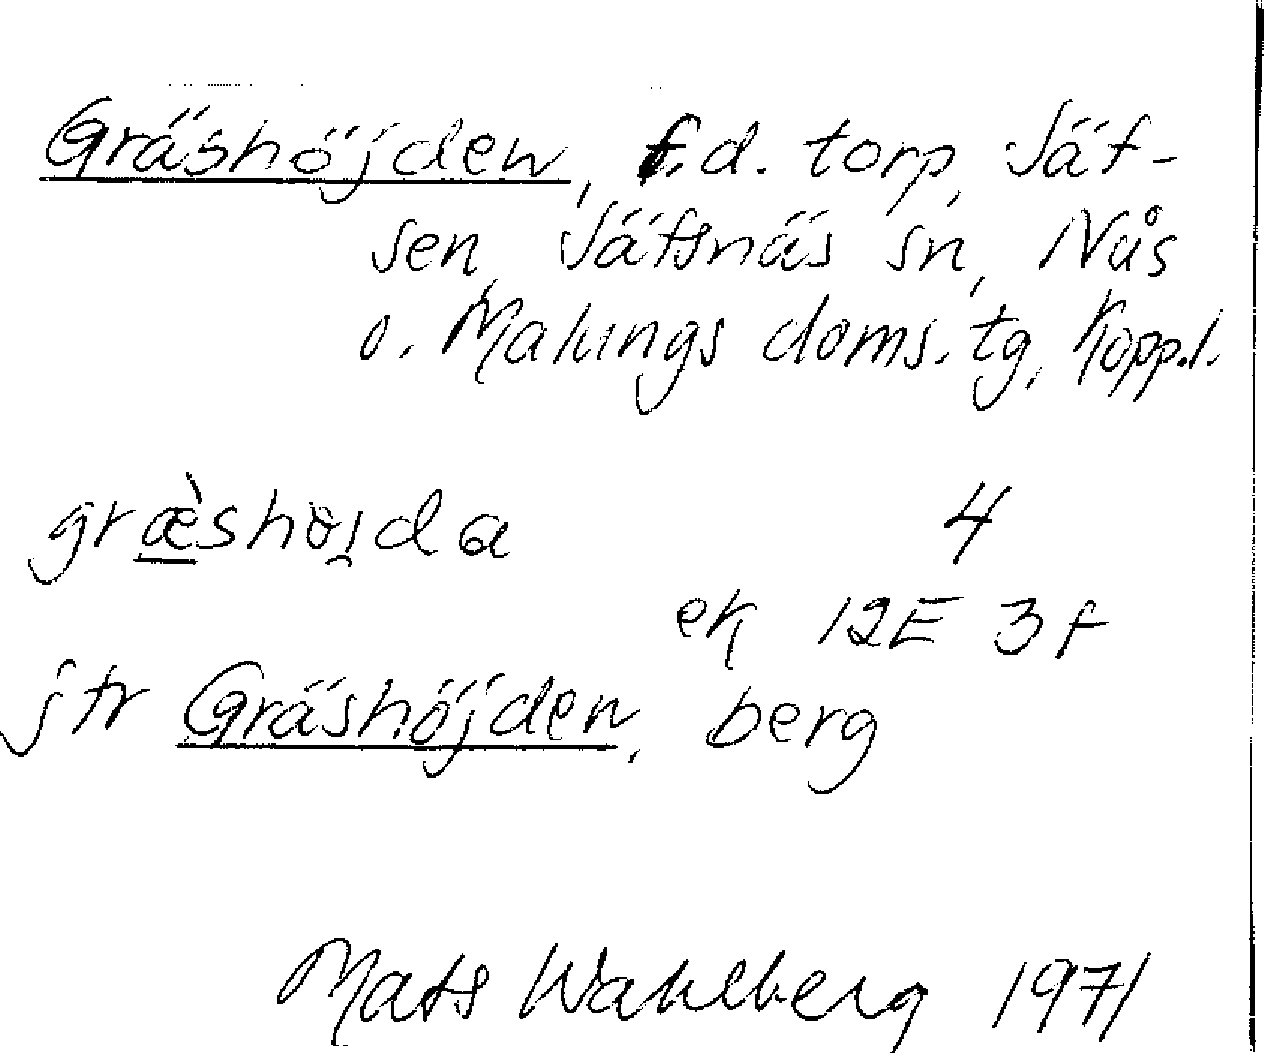 Gräshöjden, f.d. torp, Säf-
sen, Säfsnäs sn, Nås
o. Malungs doms.tg, Kopp.l.
græ̀shöi̯da 4
ek 12E 3f
jfr Gräshöjden, berg
Mats Wahlberg 1971